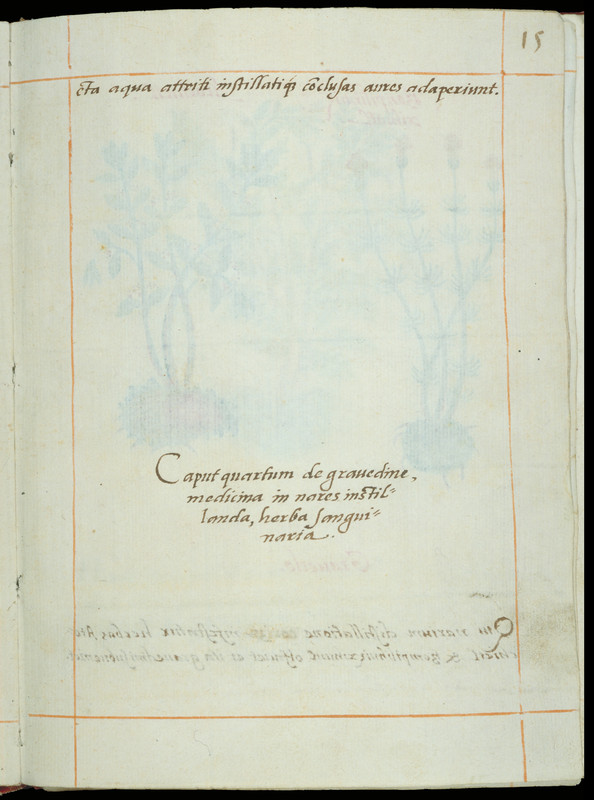 15
cta aqua attriti instillatiq̃ cõclusas aures adaperiunt.
Caput quartum de grauedine,
medicina in nares instil=
landa, herba sangui=
naria.